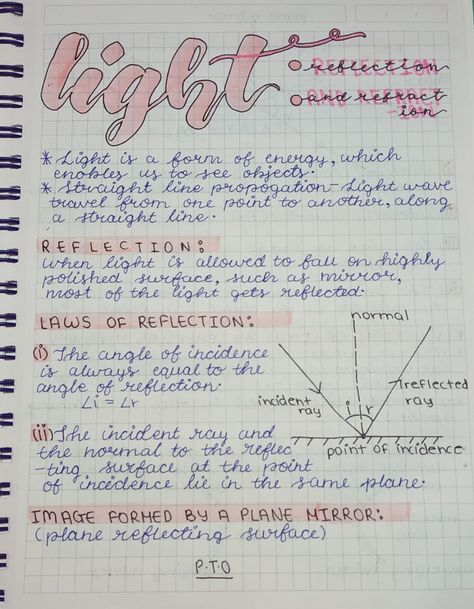 light
reflection
REFLECTION
and refract
AND REFRACT
ion
-ION
* Light is a form of energy, which
enables us to see objects.
* Straight line propogation- Light wave
travel from one point to another, along
a straight line.
REFLECTION:
when light is allowed to fall on highly
polished surface, such as mirror,
most of the light gets reflected.
LAWS OF REFLECTION:
(i) The angle of incidence
is always equal to the
angle of reflection.
∠i = ∠r
normal
incident
ray
i r
reflected
ray
point of incidence
(ii) The incident ray and
the normal to the reflec
-ting surface at the point
of incedence lie in the same plane.
IMAGE FORMED BY A PLANE MIRROR:
(plane reflecting surface)
P.T.O